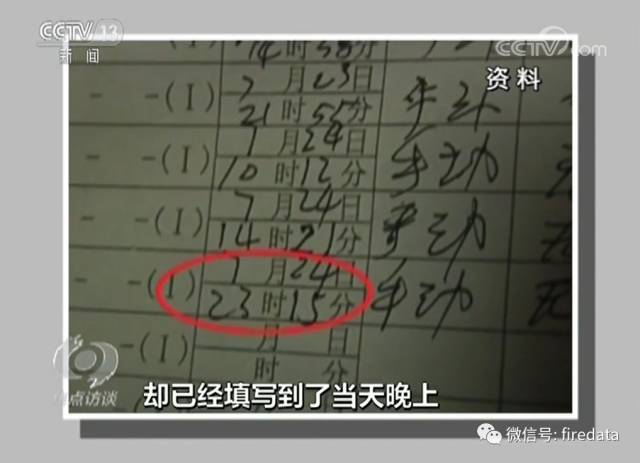 CCTV 13
新闻
CCTV.com
资料
14时58分
- -(I) 7月23日
21时55分 手动
- -(I) 7月24日
10时12分 手动
- -(I) 7月24日
14时21分 手动
- -(I) 7月24日
23时15分 手动
- -(I) 月 日
时 分
焦点访谈
却已经填写到了当天晚上
微信号: firedata